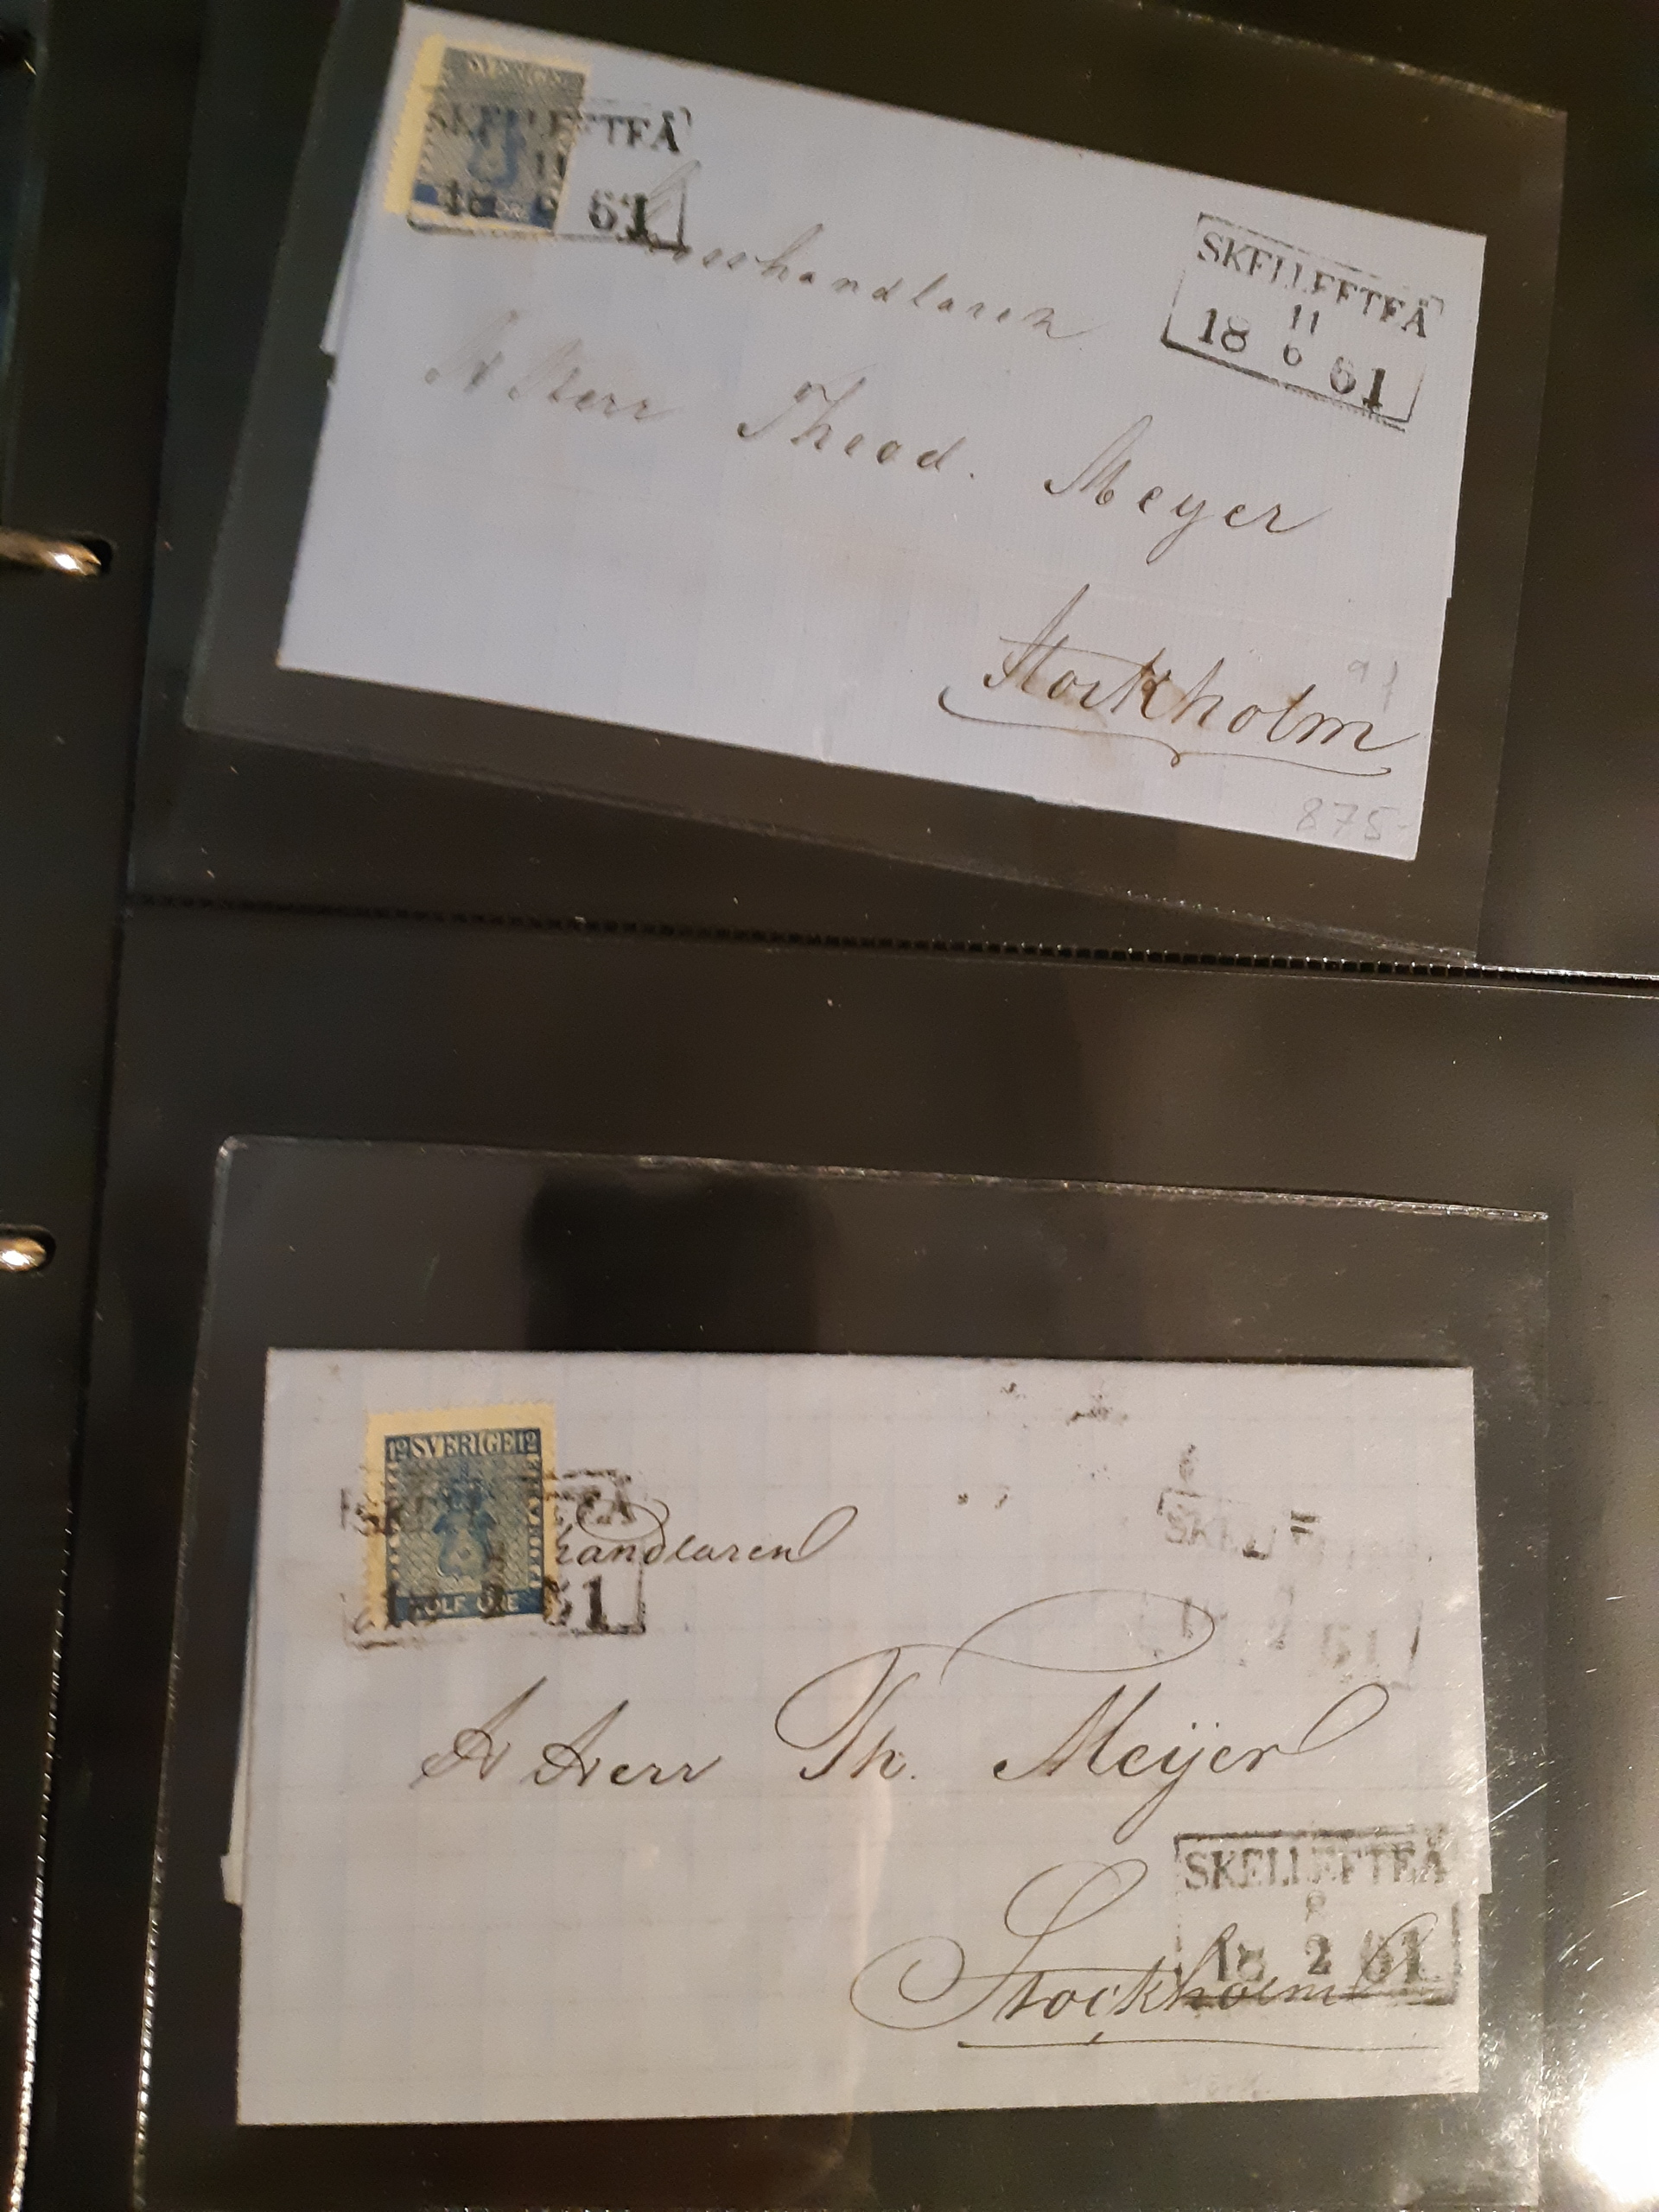 SVERIGE
SKELLEFTEÅ
61
SKELLEFTEÅ
11
18 6 61
Herr Theod. Meyer
Stockholm
875-
12 SVERIGE 12
TOLF ÖRE
61
handlaren
SKELL
61
Herr Th. Meijer
SKELLEFTEÅ
8
18 2 61
Stockholm